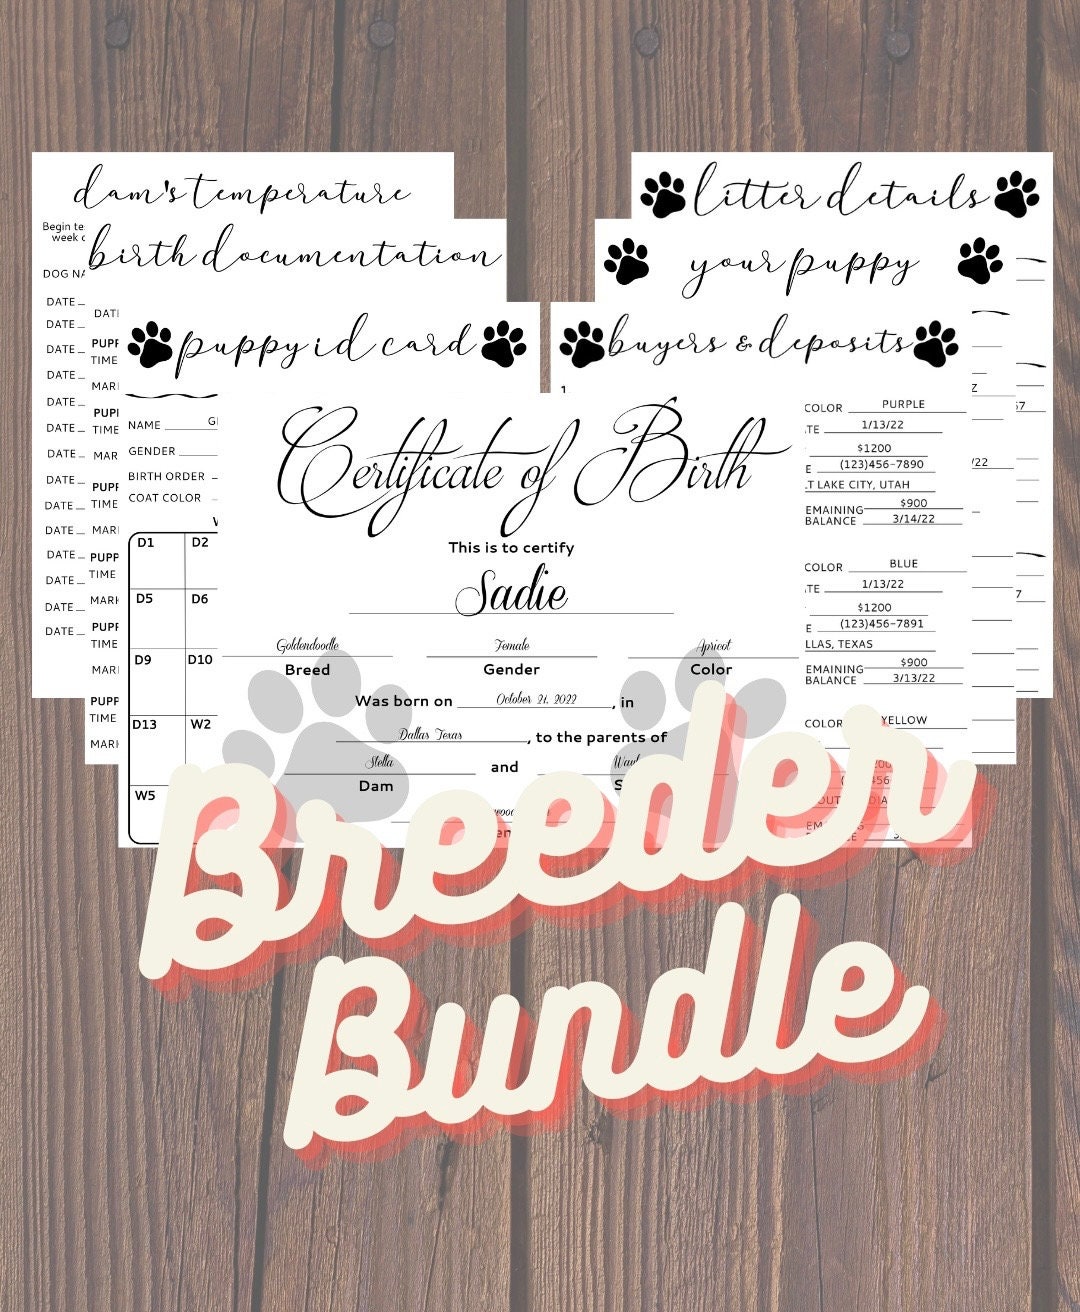 dam's temperature
Begin te
week
DOG NA
DATE
DATE
DATE
DATE
DATE
DATE
DATE
DATE
DATE
DATE
DATE
DATE
DATE
DATE
birth documentation
DAT
PUPP
TIME
MARK
PUPP
TIME
MAR
PUPP
TIME
MARK
PUPP
TIME
MARK
PUPP
TIME
MAR
PUPP
TIME
MARK
puppy id card
NAME
GENDER
BIRTH ORDER
COAT COLOR
D1 D2
D5 D6
D9 D10
D13 W2
W5
litter details
your puppy
buyers & deposits
COLOR PURPLE
TE 1/13/22
$1200
E (123)456-7890
LT LAKE CITY, UTAH
EMAINING $900
BALANCE 3/14/22
COLOR BLUE
TE 1/13/22
$1200
E (123)456-7891
LLAS, TEXAS
EMAINING $900
BALANCE 3/13/22
COLOR YELLOW
Certificate of Birth
This is to certify
Sadie
Goldendoodle Female Apricot
Breed Gender Color
Was born on October 21, 2022, in
Dallas Texas, to the parents of
Stella and
Dam
Breeder
Bundle